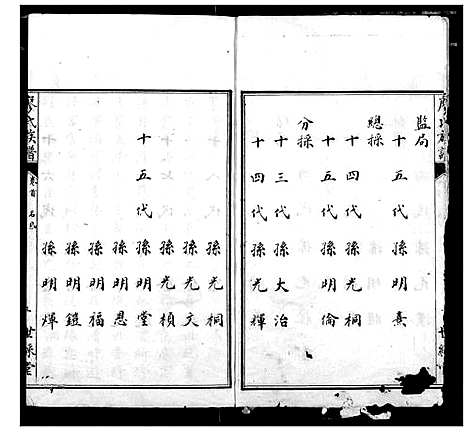 廖氏族譜
監局
十五代孫明熹
總採
十四代孫光桐
十五代孫明倫
分採
十三代孫大治
十四代孫光輝
孫光桐
孫光文
孫光楨
十五代孫明堂
孫明恩
孫明福
孫明鐙
孫明煇
廖氏族譜
卷首
世綵堂